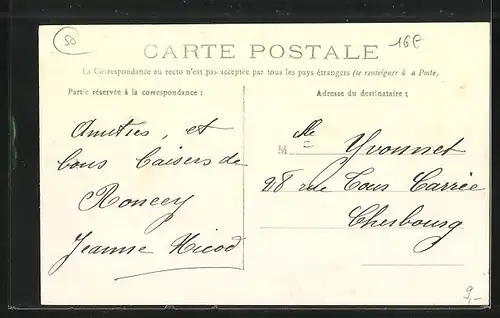 50
16E
CARTE POSTALE
La Correspondance au recto n'est pas acceptée par tous les pays étrangers (se renseigner à la Poste,
Partie réservée à la correspondance :
Adresse du destinataire :
Amitiés, et
bons baisers de
Roncey
Jeanne Nicod
Mlle Yvonnet
28 rue Tour Carrée
Cherbourg
9,-